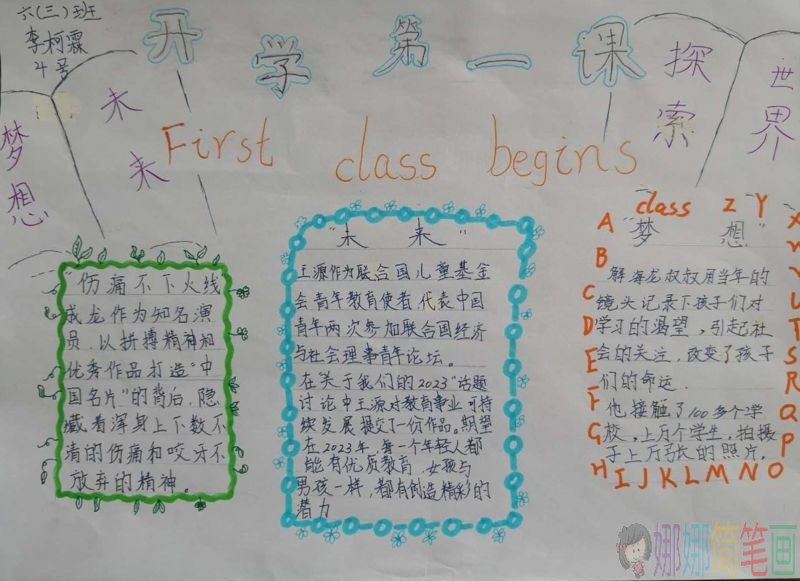 六(三)班
李柯霖
4号
开学第一课
First class begins
梦想
未来
探索
世界
伤痛不下火线
成龙作为知名演
员,以拼搏精神和
优秀作品打造"中
国名片"的背后,隐
藏着浑身上下数不
清的伤痛和咬牙不
放弃的精神。
"未来"
王源作为联合国儿童基金
会青年教育使者代表中国
青年两次参加联合国经济
与社会理事青年论坛。
在"关于我们的2023"话题
讨论中王源对教育事业可持
续发展提交了一份作品。期望
在2023年,每一个年轻人都
能有优质教育,女孩与
男孩一样,都有创造精彩的
潜力
class
"梦想"
解海龙叔叔用当年的
镜头记录下孩子们对
学习的渴望,引起社
会的关注,改变了孩子
们的命运.
他接触了100多个学
校,上万个学生,拍摄
子上万张的照片。
A
B
C
D
E
F
G
H I J K L M N O
P
Q
R
S
T
U
V
W
X
Y
Z
娜娜简笔画